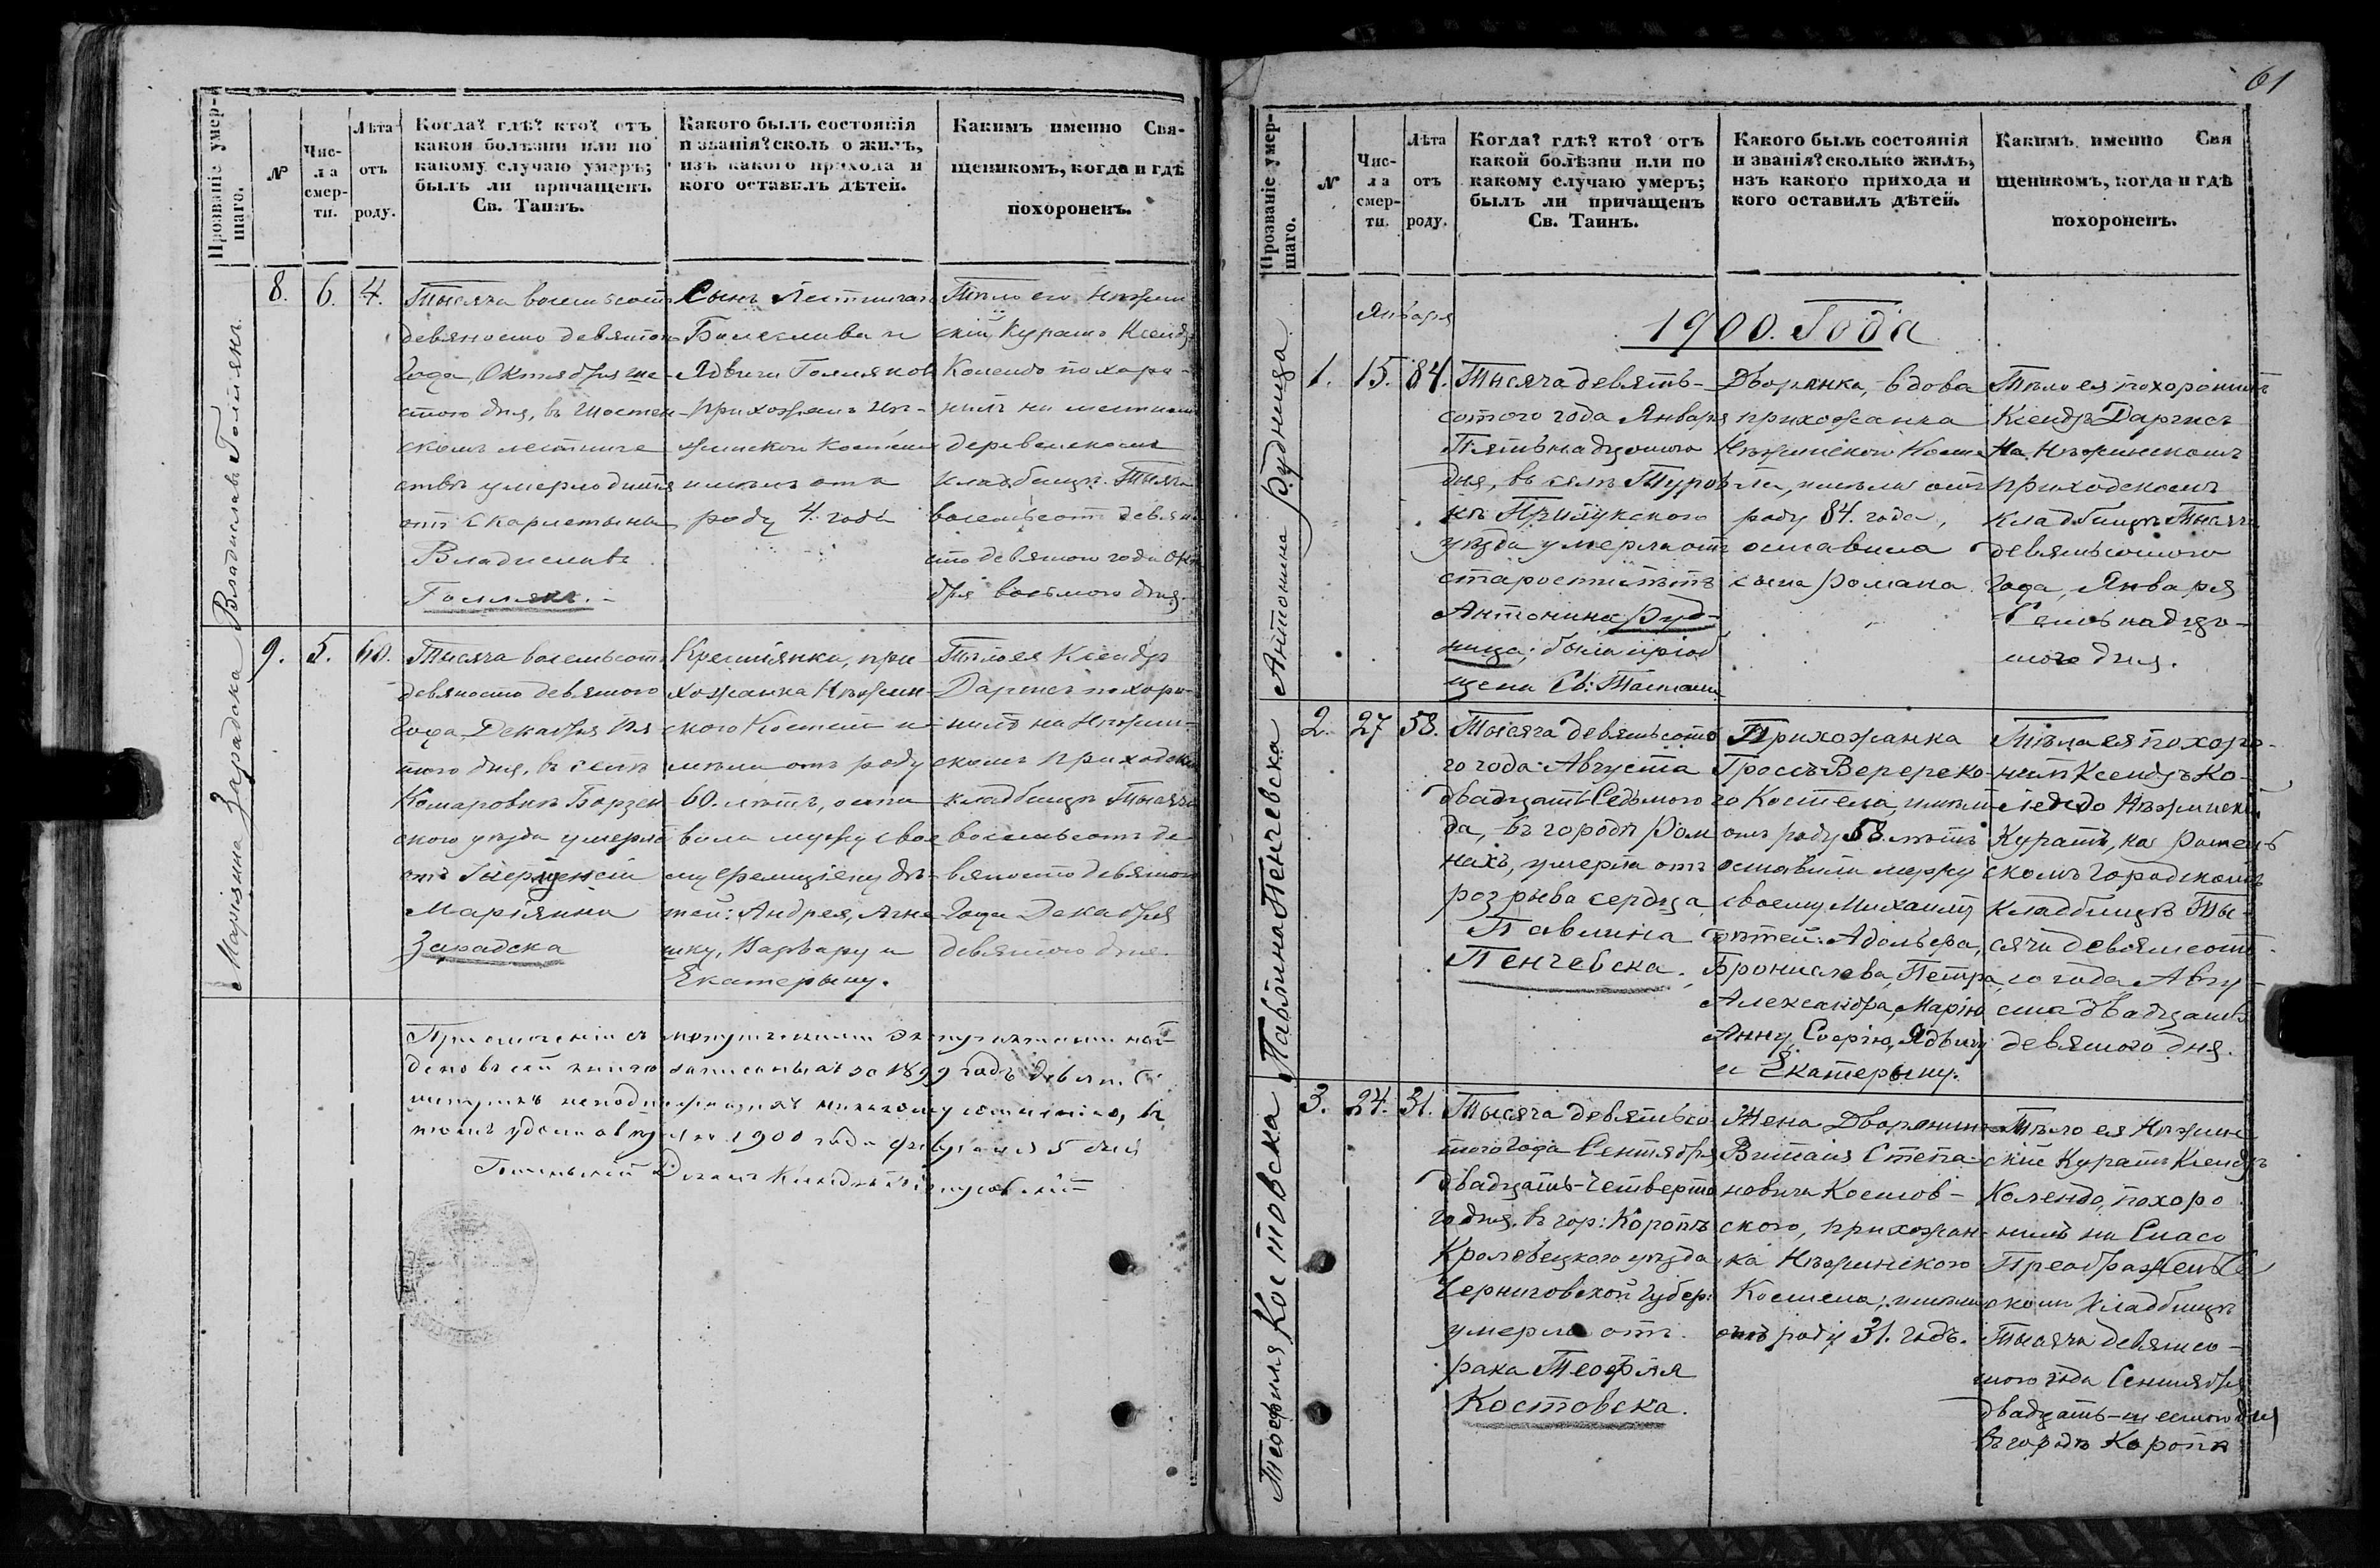 Прозваніе умер-
шаго.
№
Чис-
ла
смер-
ти.
Лѣта
отъ
роду.
Когда? гдѣ? кто? отъ
какой болѣзни или по
какому случаю умеръ;
былъ ли причащенъ
Св. Таинъ.
Какого былъ состоянія
и званія? сколь о жилъ,
изъ какого прихода и
кого оставилъ дѣтей.
Какимъ именно Свя-
щеникомъ, когда и гдѣ
похороненъ.
Владиславъ Голнякъ.
8. 6. 4.
Тысяча восемьсотъ
девяносто девятого
Года, Октября ше-
стого дня, въ
умерло дитя
отъ Скарлетыны
Владиславъ
Голнякъ.
Сынъ
Болеслава и
Ядвиги Голняковъ
прихожанъ Нѣ-
жинскои Костела
имѣлъ отъ
роду 4. года
Тѣло его Нѣжин
скій Куратъ Ксендзъ
Колендо похоро-
нилъ на местномъ
деревенскомъ
кладбищѣ. Тысяча
восемьсотъ девяно
сто девятого года Октя
бря восьмого дня.
Маріянна Зарадска
9. 5. 60.
Тысяча восемьсотъ
девяносто девятого
Года, Декабря Пя
того дня, въ селѣ
Комаровкѣ Борзен
ского уѣзда умерла
отъ
Маріянна
Зарадска
Крестіянка, при-
хожанка Нѣжин-
ского Костела и-
мѣла отъ роду
60. лѣтъ, оста
вила мужу свое
му Фелиціяну дѣ-
тей: Андрея, Агне
шку, Варвару и
Екатерыну.
Тѣло ея Ксендзъ
Даргисъ похоро-
нилъ на Нѣжин-
скомъ приходскомъ
кладбищѣ Тысяча
восемьсотъ де-
вяносто девятого
Года Декабря
девятого дня.
денo въ сей книгѣ записаныхъ за 1899 годъ девять
томъ удостовѣряю 1900 года февраля 5 дня
Деканъ Ксендзъ
61
Прозваніе умер-
шаго.
№
Чис-
ла
смер-
ти.
Лѣта
отъ
роду.
Когда? гдѣ? кто? отъ
какой болѣзни или по
какому случаю умеръ;
былъ ли причащенъ
Св. Таинъ.
Какого былъ состоянія
и званія? сколько жилъ,
изъ какого прихода и
кого оставилъ дѣтей.
Какимъ именно Свя
щеникомъ, когда и гдѣ
похороненъ.
Января
1900. Года
Антонина Рудница
1. 15. 84.
Тысяча девять-
сотого года Января
Пятьнадцотого
дня, въ селѣ Туров
кѣ Прилукского
уѣзда умерла отъ
старости лѣтъ
Антонина Руд-
ница; была прiоб
щена Св: Таинами
Дворянка, вдова
прихожанка
Нѣжинского Косте
ла, имѣла отъ
роду 84. года,
оставила
сына Романа.
Тѣло ея похоронилъ
Ксендзъ Даргисъ
На Нѣжинскомъ
приходскомъ
кладбищѣ Тысяча
девятьсотого
Года, Января
Семьнадцо-
того дня.
Павлина Пенчевска
2. 27 58.
Тысяча девятьсото
го года Августа
двадцать Седьмого
дня, въ городѣ Ром
нахъ, умерла отъ
розрыва сердца
Павлина
Пенчевска.
Прихожанка
го Костела, имѣла
отъ роду 58 лѣтъ
оставила мужу
своему Михаилу
дѣтей: Адольфа,
Бронислава, Петра,
Александра, Марію
Анну, Софію, Ядвигу
и Екатерыну.
Тѣло ея похоро-
нилъ Ксендзъ Ко-
лендо Нѣжинскій
Куратъ, на Ромен
скомъ Городскомъ
кладбищѣ Ты-
сяча девятьсот-
ого года Авгу-
ста двадцать
девятого дня.
Теофиля Костовска
3. 24. 31.
Тысяча девятьсо
того Года Сентября
двадцать-четверто
го дня, въ гор: Коропѣ
Кролевецкого уѣзда
Черниговской Губер:
умерла отъ
рака Теофля
Костовска.
Жена Дворянина
Виталія Степа-
новича Костов-
ского, прихожан-
ка Нѣжинского
Костела; имѣла
отъ роду 31. годъ.
Тѣло ея Нѣжин
скій Куратъ Ксендзъ
Колендо, похоро
нилъ на Спасо
Преображен
скомъ кладбищѣ
Тысяча девятьсо-
того года Сентября
двадцать-шестого дня
въ городѣ Коропѣ